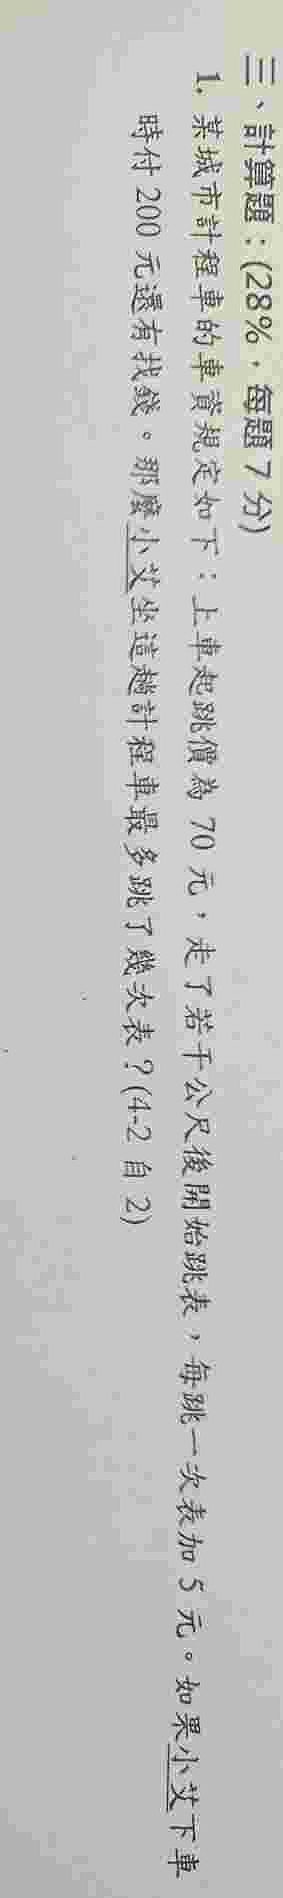 三、計算題：(28%，每題 7 分)
1. 某城市計程車的車資規定如下：上車起跳價為 70 元，走了若干公尺後開始跳表，每跳一次表加 5 元。如果小艾下車
時付 200 元還有找錢。那麼小艾坐這趟計程車最多跳了幾次表？(4-2 自 2)